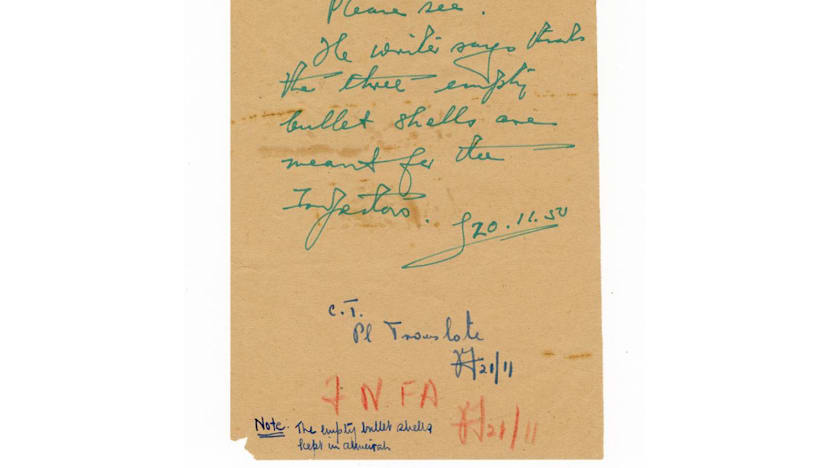 Please see.
The writer says that
the three empty
bullet shells are
meant for the
Inspectors.
20.11.50
C.T.
Pl Translate
21/11
F N FA
21/11
Note. The empty bullet shells
kept in almeirah